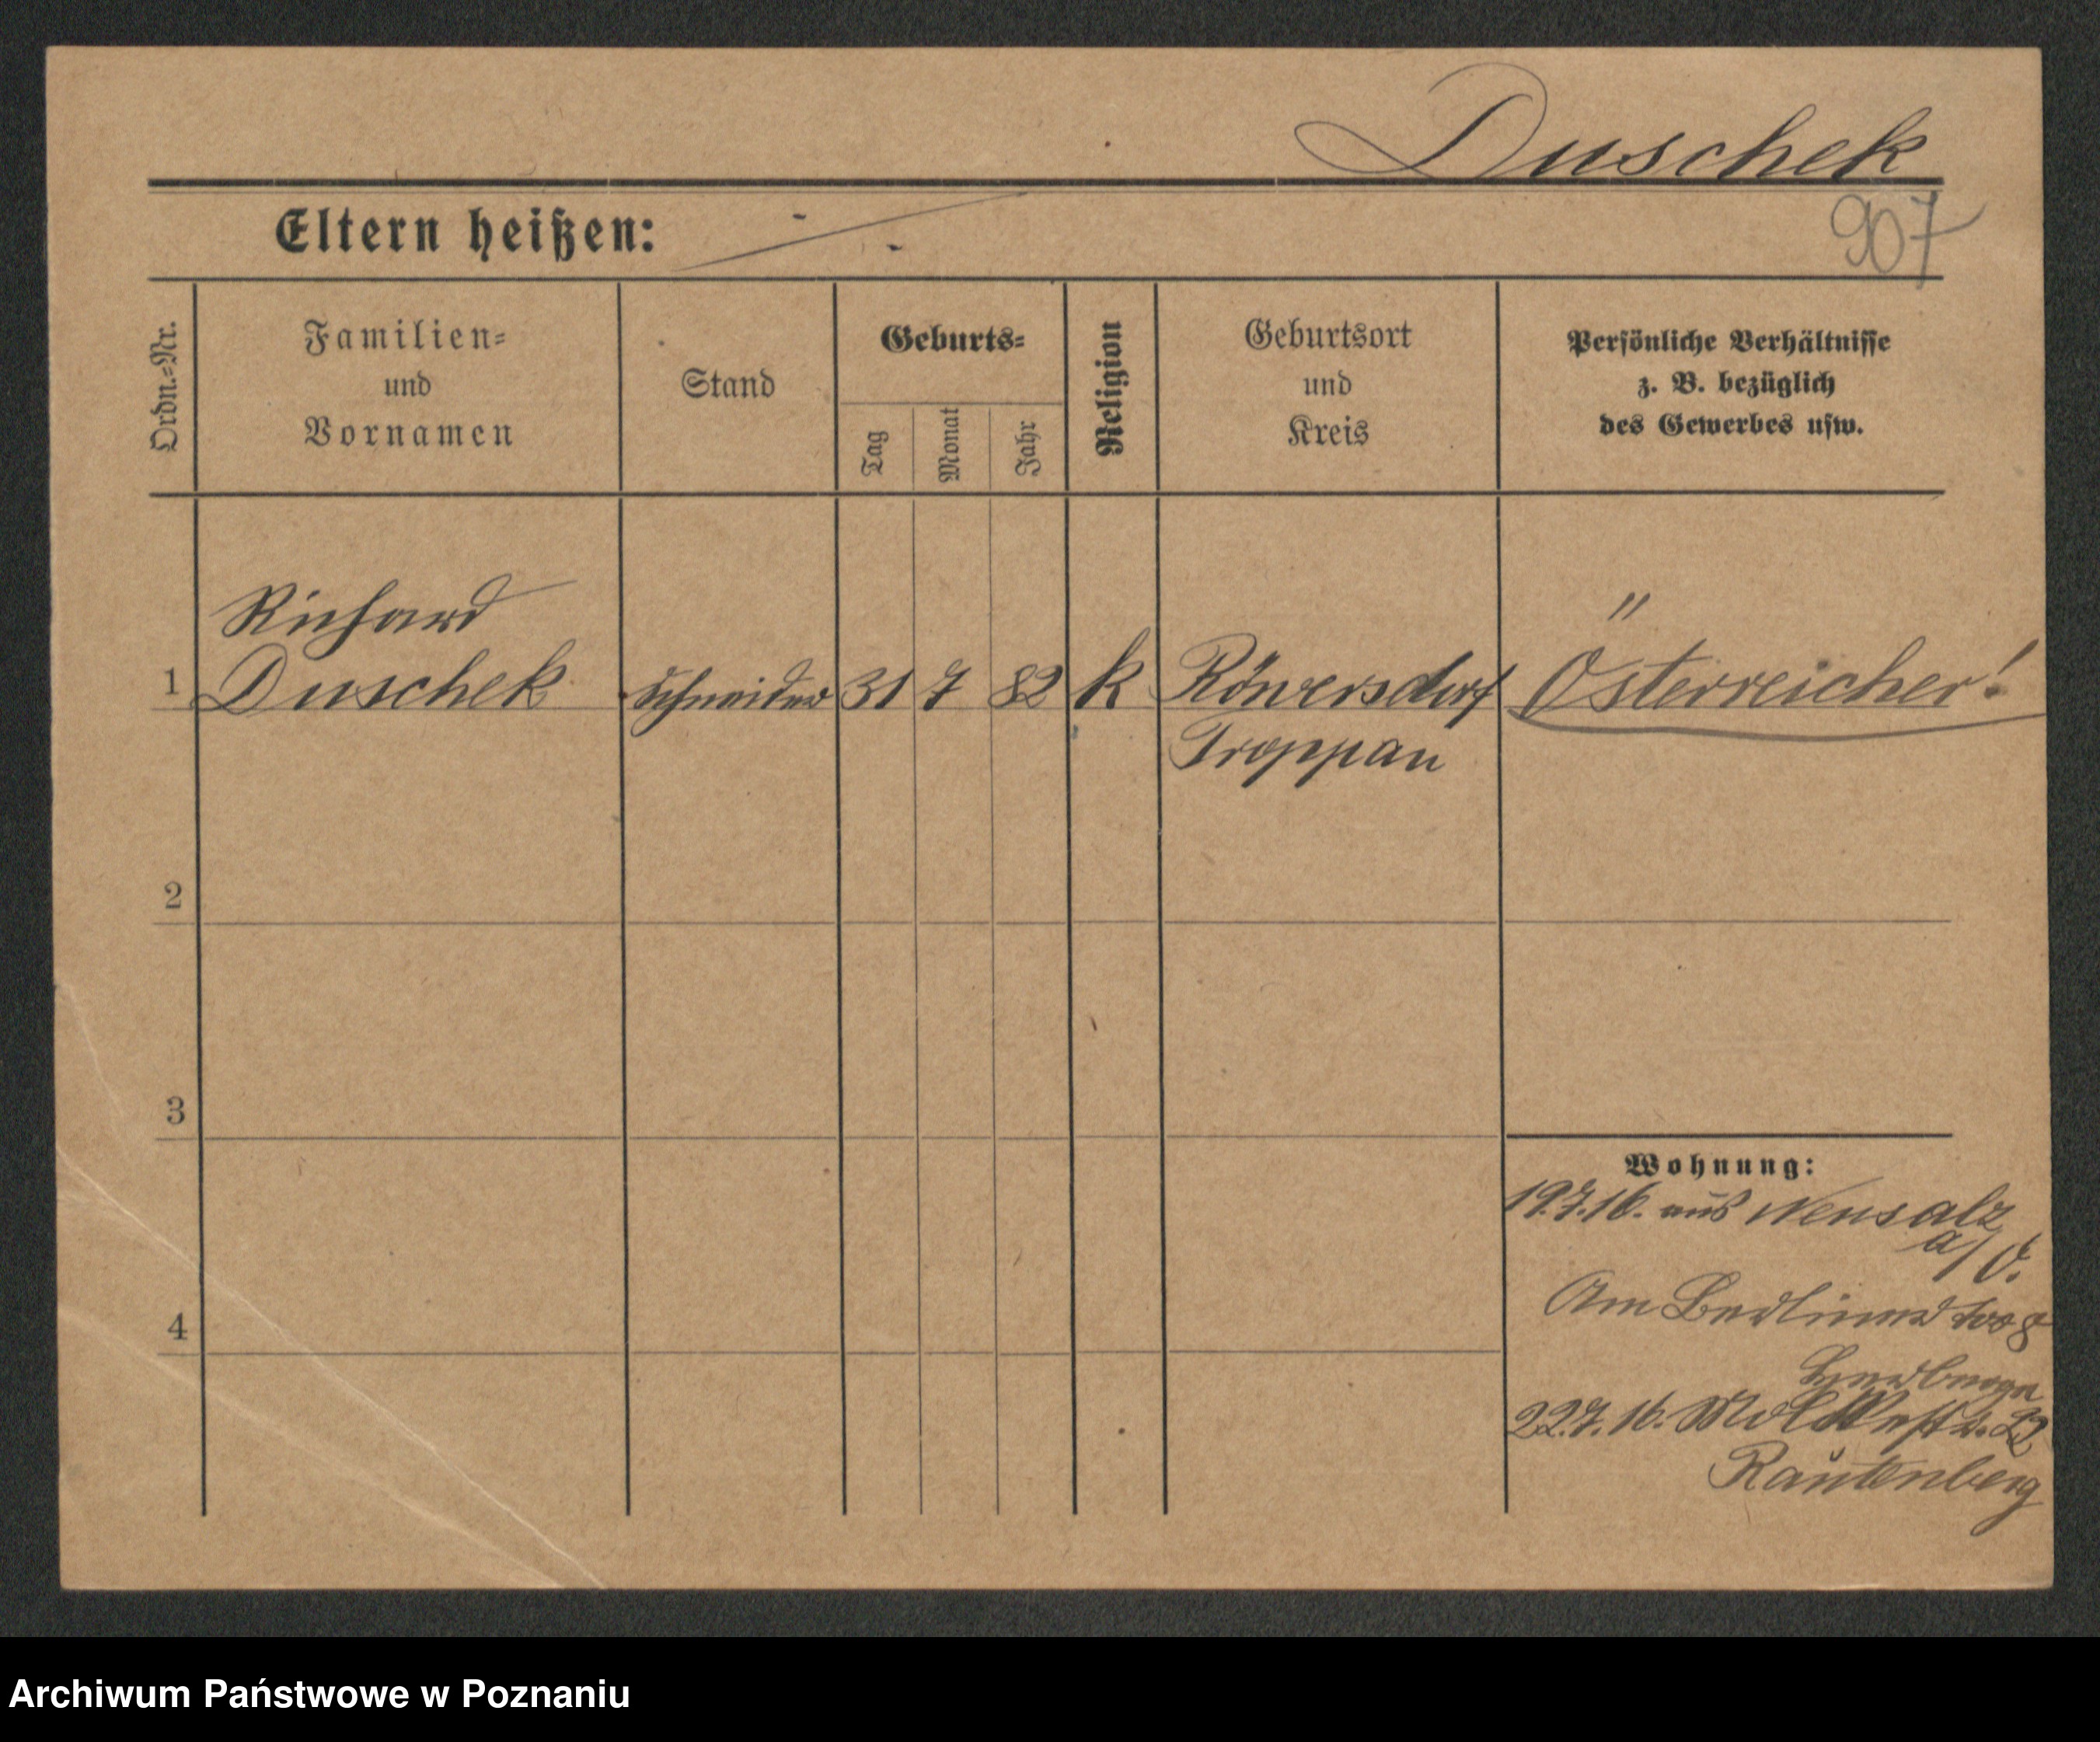 Duschek
907
Eltern heißen:
Ordn.=Nr.
Familien=
und
Vornamen
Stand
Geburts=
Tag
Monat
Jahr
Religion
Geburtsort
und
Kreis
Persönliche Verhältnisse
z. B. bezüglich
des Gewerbes usw.
Richard
1 Duschek Schneider 31 7 82 k Röwersdorf Österreicher!
Troppau
2
3
4
Wohnung:
19.7.16. aus Neusalz
a/O.
Am Berliner Tor 8
Herberge
22.7.16. Moltkestr. 22
Rautenberg
Archiwum Państwowe w Poznaniu